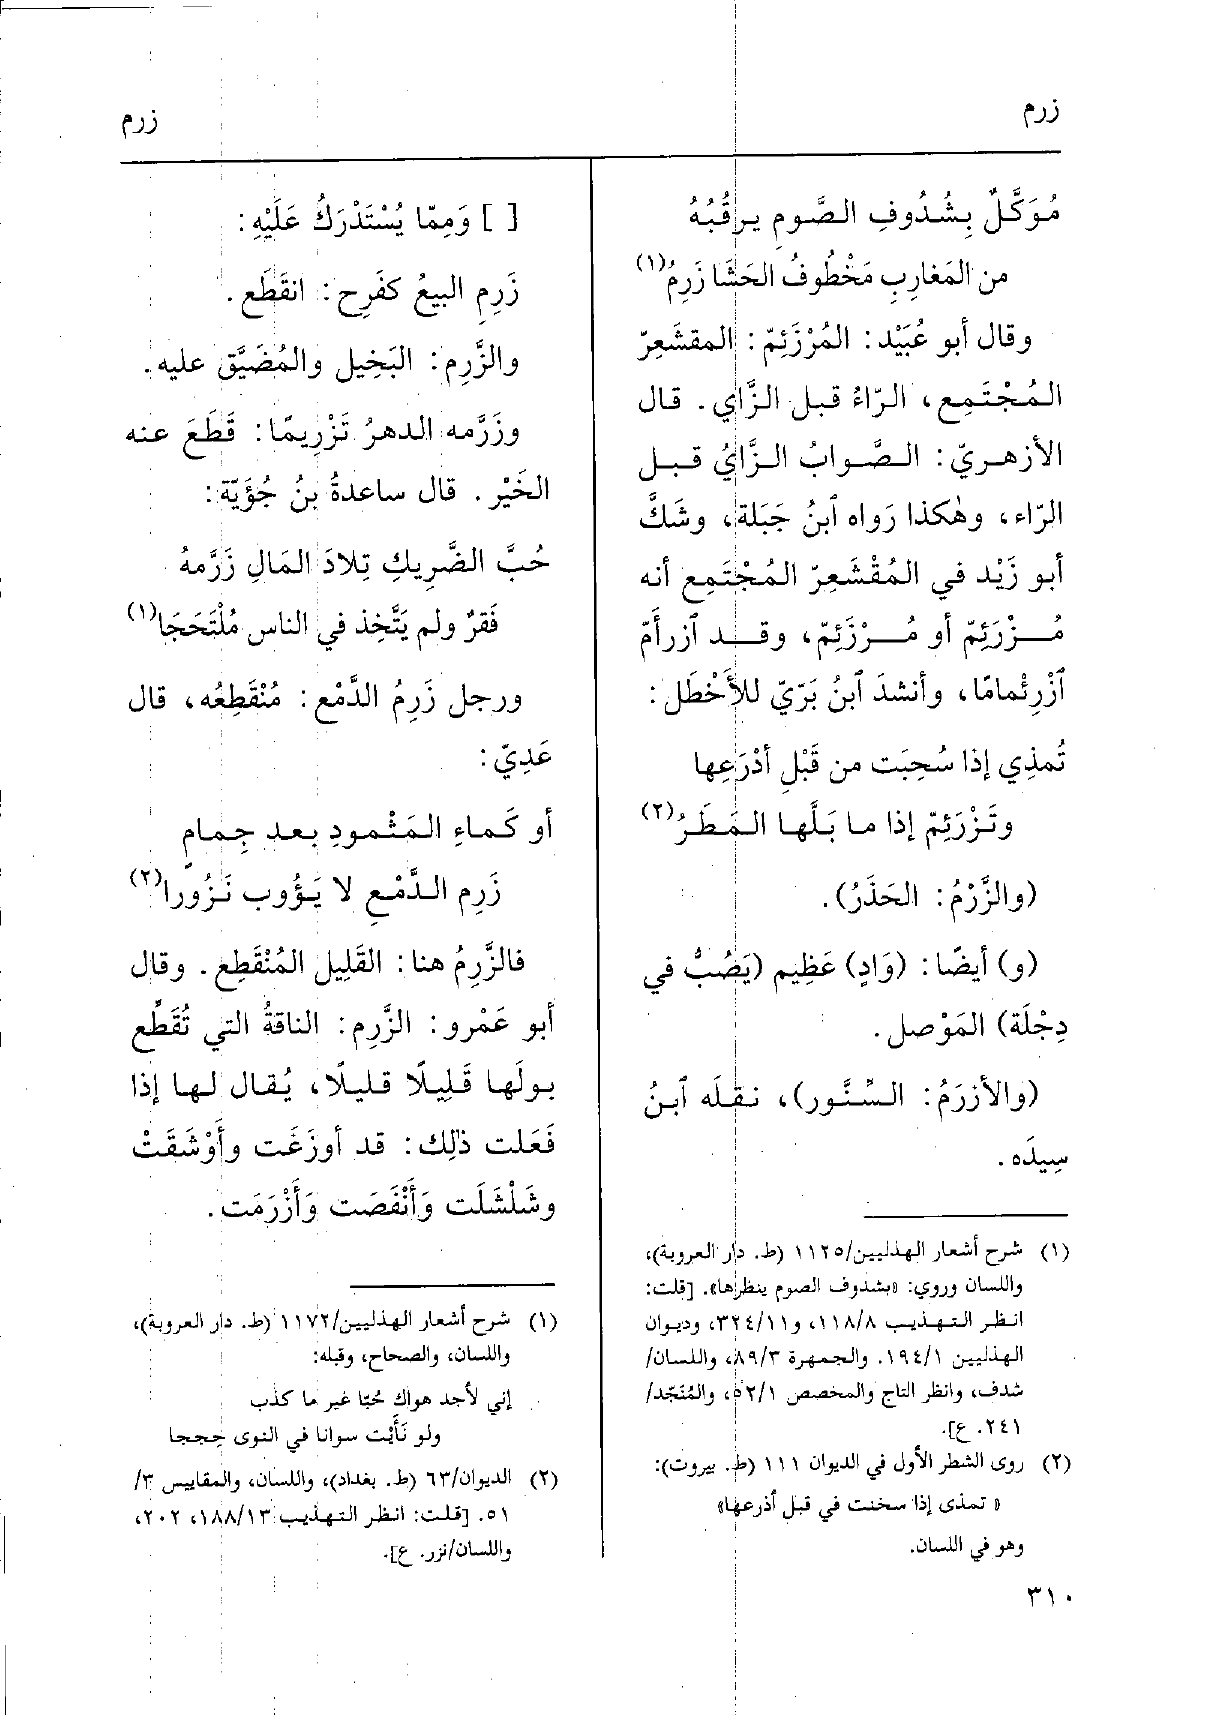 زرم
زرم
مُوَكَّلٌ بِشُدُوفِ الصَّومِ يرقُبُهُ
من المَغارِبِ مَخْطُوفُ الحَشَا زَرِمُ(١)
وقال أبو عُبَيْد: المُرْزَئِمّ: المقشَعِرّ
المُجْتَمِع، الرّاءُ قبل الزَّاي. قال
الأزهريّ: الصَّوابُ الزَّايُ قبل
الرّاء، وهٰكذا رَواه ٱبنُ جَبَلة، وشَكَّ
أبو زَيْد في المُقْشَعِرّ المُجْتَمِع أنه
مُزْرَئِمّ أو مُرْزَئِمّ، وقد ٱزرأَمّ
ٱزْرِئْمامًا، وأنشدَ ٱبنُ بَرّيّ للأَخْطَل:
تُمذِي إذا سُحِبَت من قَبْلِ أدْرَعِها
وتَزْرَئِمّ إذا ما بَلَّها المَطَرُ(٢)
(والزَّرْمُ: الحَذَرُ).
(و) أيضًا: (وَادٍ) عَظِيم (يَصُبُّ في
دِجْلَة) المَوْصل.
(والأزرَمُ: السِّنَّور)، نقلَه ٱبنُ
سِيدَه.
(١) شرح أشعار الهذليين/١١٢٥ (ط. دار العروبة)،
واللسان وروي: «بشدوف الصوم ينظرها». [قلت:
انظر التهذيب ١١٨/٨، و٣٢٤/١١، وديوان
الهذليين ١٩٤/١. والجمهرة ٨٩/٣، واللسان/
شدف، وانظر التاج والمخصص ٥٢/١، والمُنَجّد/
٢٤١. ع].
(٢) روى الشطر الأول في الديوان ١١١ (ط. بيروت):
« تمذى إذا سخنت في قبل أذرعها»
وهو في اللسان.
٣١٠
[ ] وَمِمّا يُسْتَدْرَكُ عَلَيْهِ:
زَرِمِ البيعُ كفَرِح: انقَطَع.
والزَّرِم: البَخِيل والمُضَيَّق عليه.
وزَرَّمه الدهرُ تَزْرِيمًا: قَطَعَ عنه
الخَيْر. قال ساعدةُ بنُ جُؤَيَّة:
حُبَّ الضَّرِيكِ تِلادَ المَالِ زَرَّمهُ
فَقرٌ ولم يَتَّخِذ في الناس مُلْتَحَجَا(١)
ورجل زَرِمُ الدَّمْع: مُنْقَطِعُه، قال
عَدِيّ:
أو كَماءِ المَثْمودِ بعد جِمامٍ
زَرِم الدَّمْعِ لا يَؤُوب نَزُورا(٢)
فالزَّرِمُ هنا: القَلِيل المُنْقَطِع. وقال
أبو عَمْرو: الزَّرِم: الناقةُ التي تُقَطِّع
بولَها قَلِيلًا قليلًا، يُقال لها إذا
فَعَلت ذٰلِك: قد أوزَغَت وأَوْشَقَتْ
وشَلْشَلَت وَأَنْفَصَت وَأَزْرَمَت.
(١) شرح أشعار الهذليين/١١٧٢ (ط. دار العروبة)،
واللسان، والصحاح، وقبله:
إني لأجد هواك حُبّا غير ما كذب
ولو نَأَيْت سوانا في النوى حِججا
(٢) الديوان/٦٣ (ط. بغداد)، واللسان، والمقاييس ٣/
٥١. [قلت: انظر التهذيب ١٨٨/١٣، ٢٠٢،
واللسان/نزر. ع].